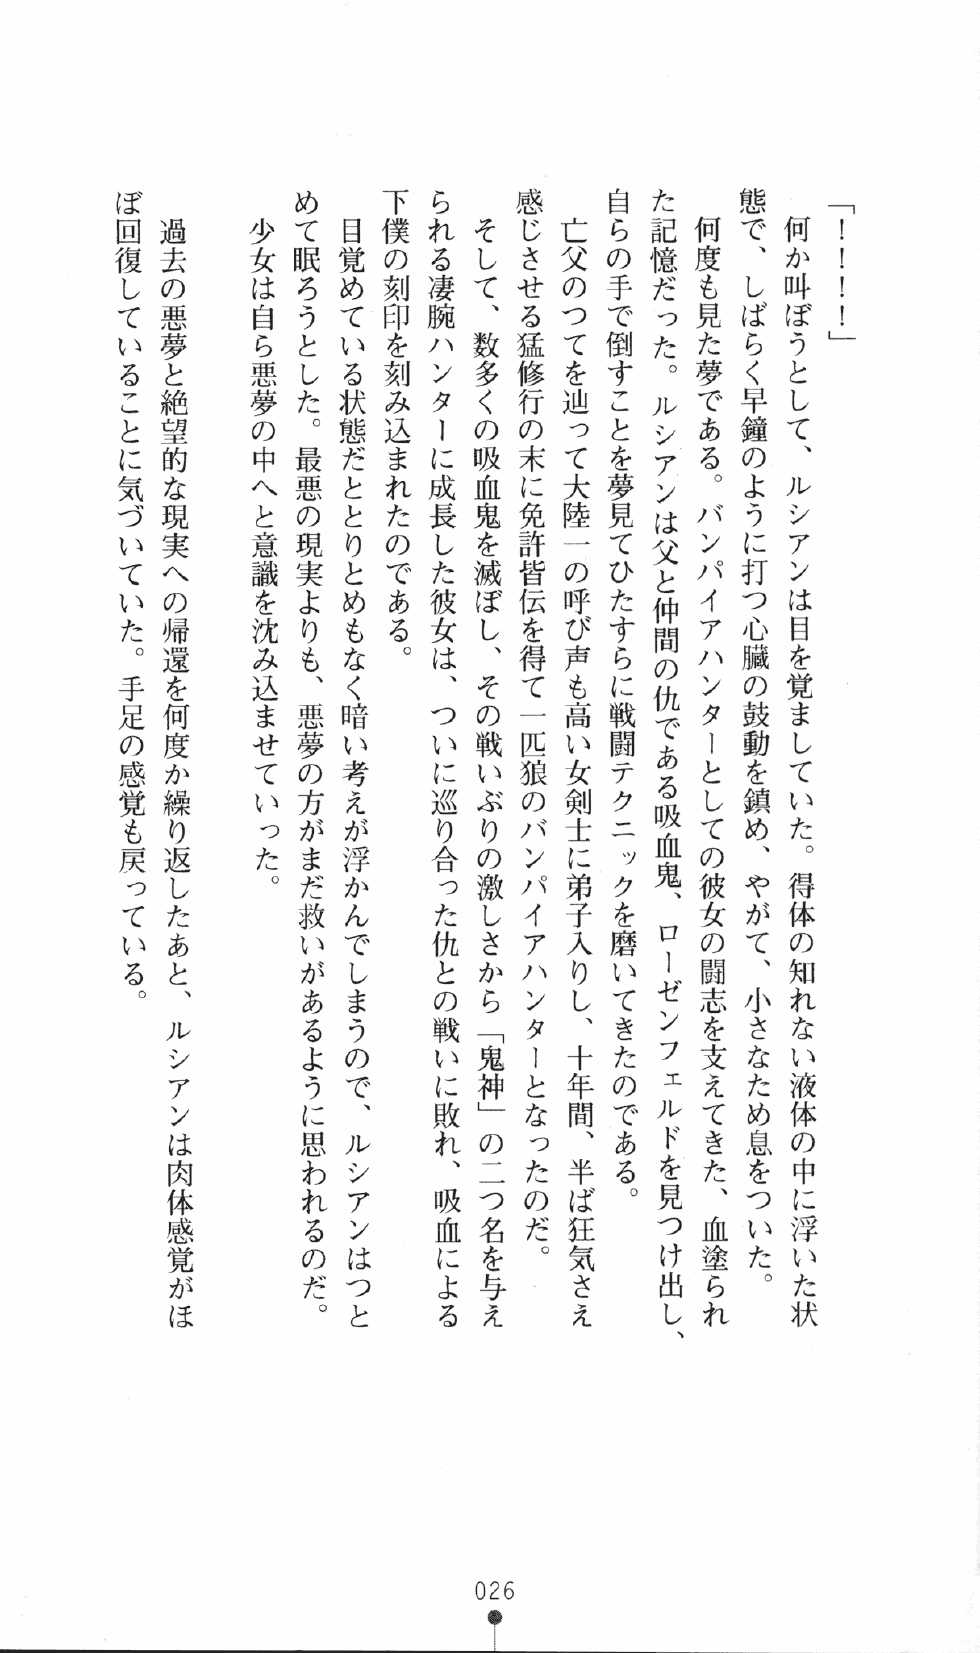 「！！！！」
何か叫ぼうとして、ルシアンは目を覚ましていた。得体の知れない液体の中に浮いた状
態で、しばらく早鐘のように打つ心臓の鼓動を鎮め、やがて、小さなため息をついた。
何度も見た夢である。バンパイアハンターとしての彼女の闘志を支えてきた、血塗られ
た記憶だった。ルシアンは父と仲間の仇である吸血鬼、ローゼンフェルドを見つけ出し、
自らの手で倒すことを夢見てひたすらに戦闘テクニックを磨いてきたのである。
亡父のつてを辿って大陸一の呼び声も高い女剣士に弟子入りし、十年間、半ば狂気さえ
感じさせる猛修行の末に免許皆伝を得て一匹狼のバンパイアハンターとなったのだ。
そして、数多くの吸血鬼を滅ぼし、その戦いぶりの激しさから「鬼神」の二つ名を与え
られる凄腕ハンターに成長した彼女は、ついに巡り合った仇との戦いに敗れ、吸血による
下僕の刻印を刻み込まれたのである。
目覚めている状態だととりとめもなく暗い考えが浮かんでしまうので、ルシアンはつと
めて眠ろうとした。最悪の現実よりも、悪夢の方がまだ救いがあるように思われるのだ。
少女は自ら悪夢の中へと意識を沈み込ませていった。
過去の悪夢と絶望的な現実への帰還を何度か繰り返したあと、ルシアンは肉体感覚がほ
ぼ回復していることに気づいていた。手足の感覚も戻っている。
026